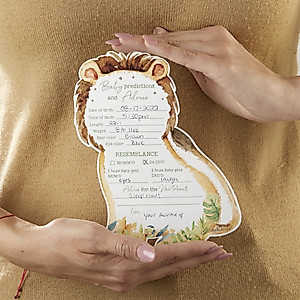 Baby predictions
and Advice
Date of birth: 08-17-2022
Time of birth: 5:30pm
Length: 22in
Weight: 8 lb 11oz
Hair color: Brown
Eye color: Blue
RESEMBLANCE
MOMMY DADDY
I hope baby gets I hope baby gets
MOM'S DAD'S
eyes laugh
Advice for the New Parents
Sleep now!
your Auntie